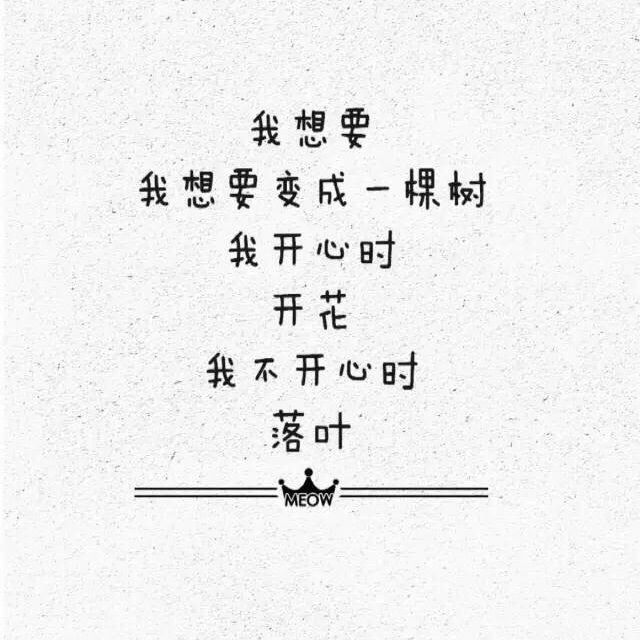 我想要
我想要变成一棵树
我开心时
开花
我不开心时
落叶
MEOW